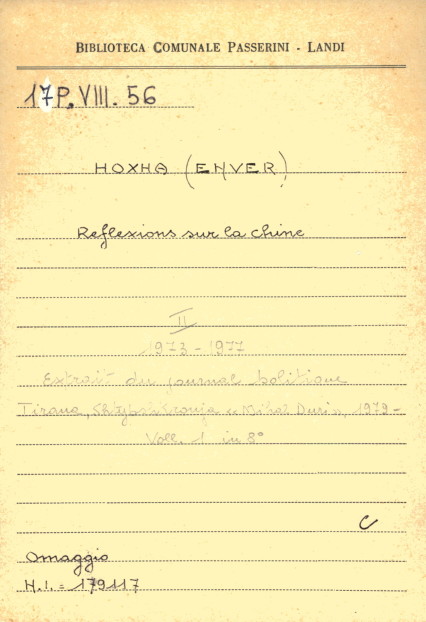 BIBLIOTECA COMUNALE PASSERINI - LANDI
17P.VIII. 56
HOXHA (ENVER)
Reflexions sur la chine
II
1973 - 1977
Extrait du journal politique
Tirana, 1979 -
Voll. 1 in 8°
C
Omaggio
N.I. = 179117